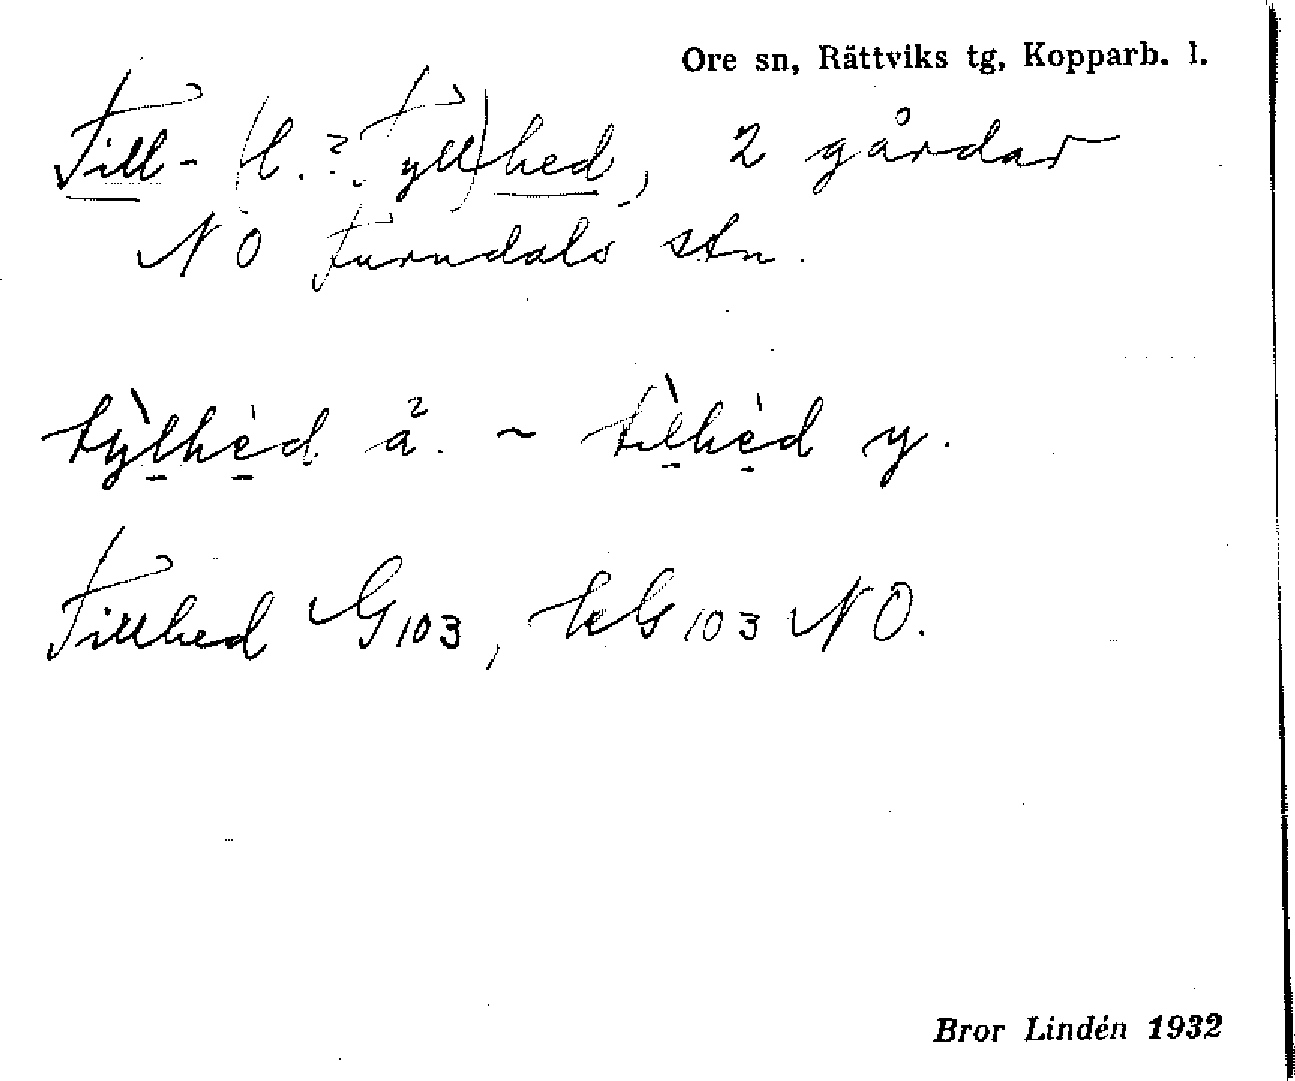 Ore sn, Rättviks tg, Kopparb. l.
Till- (l. ? Tyll)hed, 2 gårdar
NO Furudals stn.
ty̓lhèd ä. ~ tìlhèd y.
Tillhed G103, kG103 NO.
Bror Lindén 1932